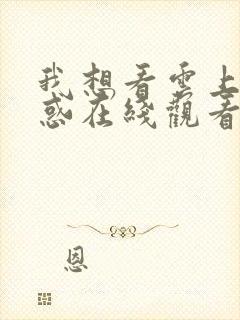 我想看雲上
惑在綫觀看
恩